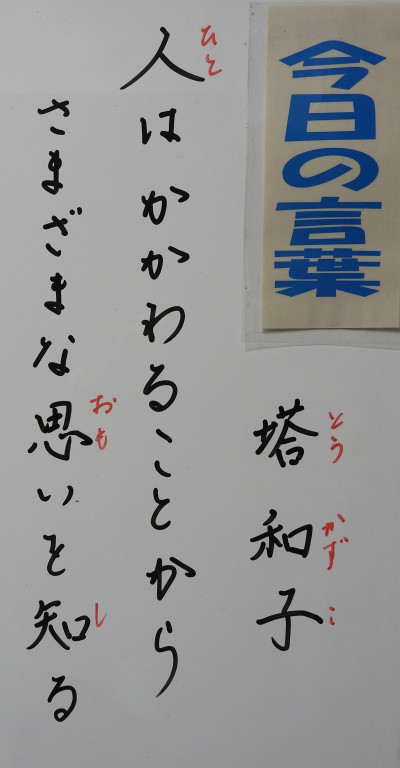 今日の言葉
塔和子
とうかずこ
人はかかわることから
ひと
さまざまな思いを知る
おもし